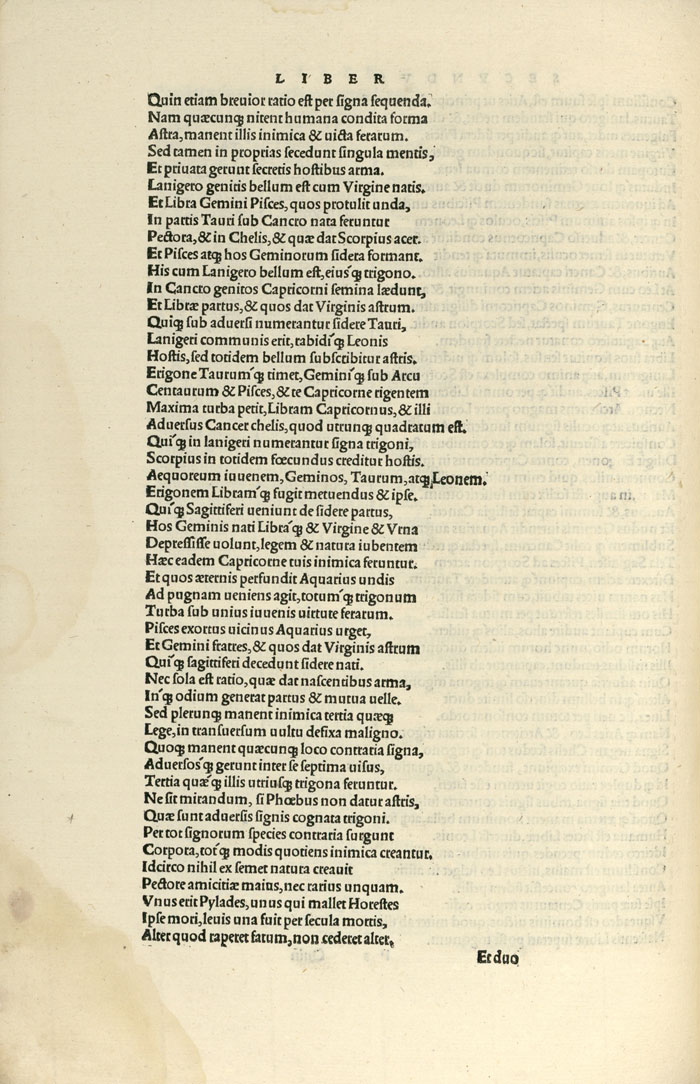 LIBER
Quin etiam breuior ratio eſt per ſigna ſequenda.
Nam quæcunqꝫ nitent humana condita forma
Aſtra, manent illis inimica & uicta ferarum.
Sed tamen in proprias ſecedunt ſingula mentis,
Et priuata gerunt ſecretis hoſtibus arma.
Lanigero genitis bellum eſt cum Virgine natis.
Et Libra Gemini Piſces, quos protulit unda,
In partis Tauri ſub Cancro nata feruntur
Pectora, & in Chelis, & quæ dat Scorpius acer.
Et Piſces atqꝫ hos Geminorum ſidera formant.
His cum Lanigero bellum eſt, eiuſqꝫ trigono.
In Cancro genitos Capricorni ſemina lædunt,
Et Libræ partus, & quos dat Virginis aſtrum.
Quiqꝫ ſub aduerſi numerantur ſidere Tauri,
Lanigeri communis erit, rabidíqꝫ Leonis
Hoſtis, ſed totidem bellum ſubſcribitur aſtris.
Erigone Taurumqꝫ́ timet, Geminíqꝫ ſub Arcu
Centaurum & Piſces, & te Capricorne rigentem
Maxima turba petit, Libram Capricornus, & illi
Aduerſus Cancer chelis, quod utrunqꝫ quadratum eſt.
Quíqꝫ in lanigeri numerantur ſigna trigoni,
Scorpius in totidem fœcundus creditur hoſtis.
Aequoreum iuuenem, Geminos, Taurum, atqꝫ Leonem.
Erigonem Libramqꝫ́ fugit metuendus & ipſe.
Quíqꝫ Sagittiferi ueniunt de ſidere partus,
Hos Geminis nati Libraqꝫ́ & Virgine & Vrna
Depreſſiſſe uolunt, legem & natura iubentem
Hæc eadem Capricorne tuis inimica feruntur.
Et quos æternis perfundit Aquarius undis
Ad pugnam ueniens agit, totumqꝫ́ trigonum
Turba ſub unius iuuenis uirtute ferarum.
Piſces exortus uicinus Aquarius urget,
Et Gemini fratres, & quos dat Virginis aſtrum
Quíqꝫ ſagittiferi decedunt ſidere nati.
Nec ſola eſt ratio, quæ dat naſcentibus arma,
Inqꝫ́ odium generat partus & mutua uelle.
Sed plerunqꝫ manent inimica tertia quæqꝫ
Lege, in tranſuerſum uultu defixa maligno.
Quoqꝫ manent quæcunqꝫ loco contraria ſigna,
Aduerſosqꝫ́ gerunt inter ſe ſeptima uiſus,
Tertia quæqꝫ́ illis utriuſqꝫ trigona feruntur.
Ne ſit mirandum, ſi Phœbus non datur aſtris,
Quæ ſunt aduerſis ſignis cognata trigoni.
Per tot ſignorum ſpecies contraria ſurgunt
Corpora, totqꝫ́ modis quotiens inimica creantur.
Idcirco nihil ex ſemet natura creauit
Pectore amicitiæ maius, nec rarius unquam.
Vnus erit Pylades, unus qui mallet Horeſtes
Ipſe mori, leuis una fuit per ſecula mortis,
Alter quod raperet fatum, non cederet alter.
Et duo